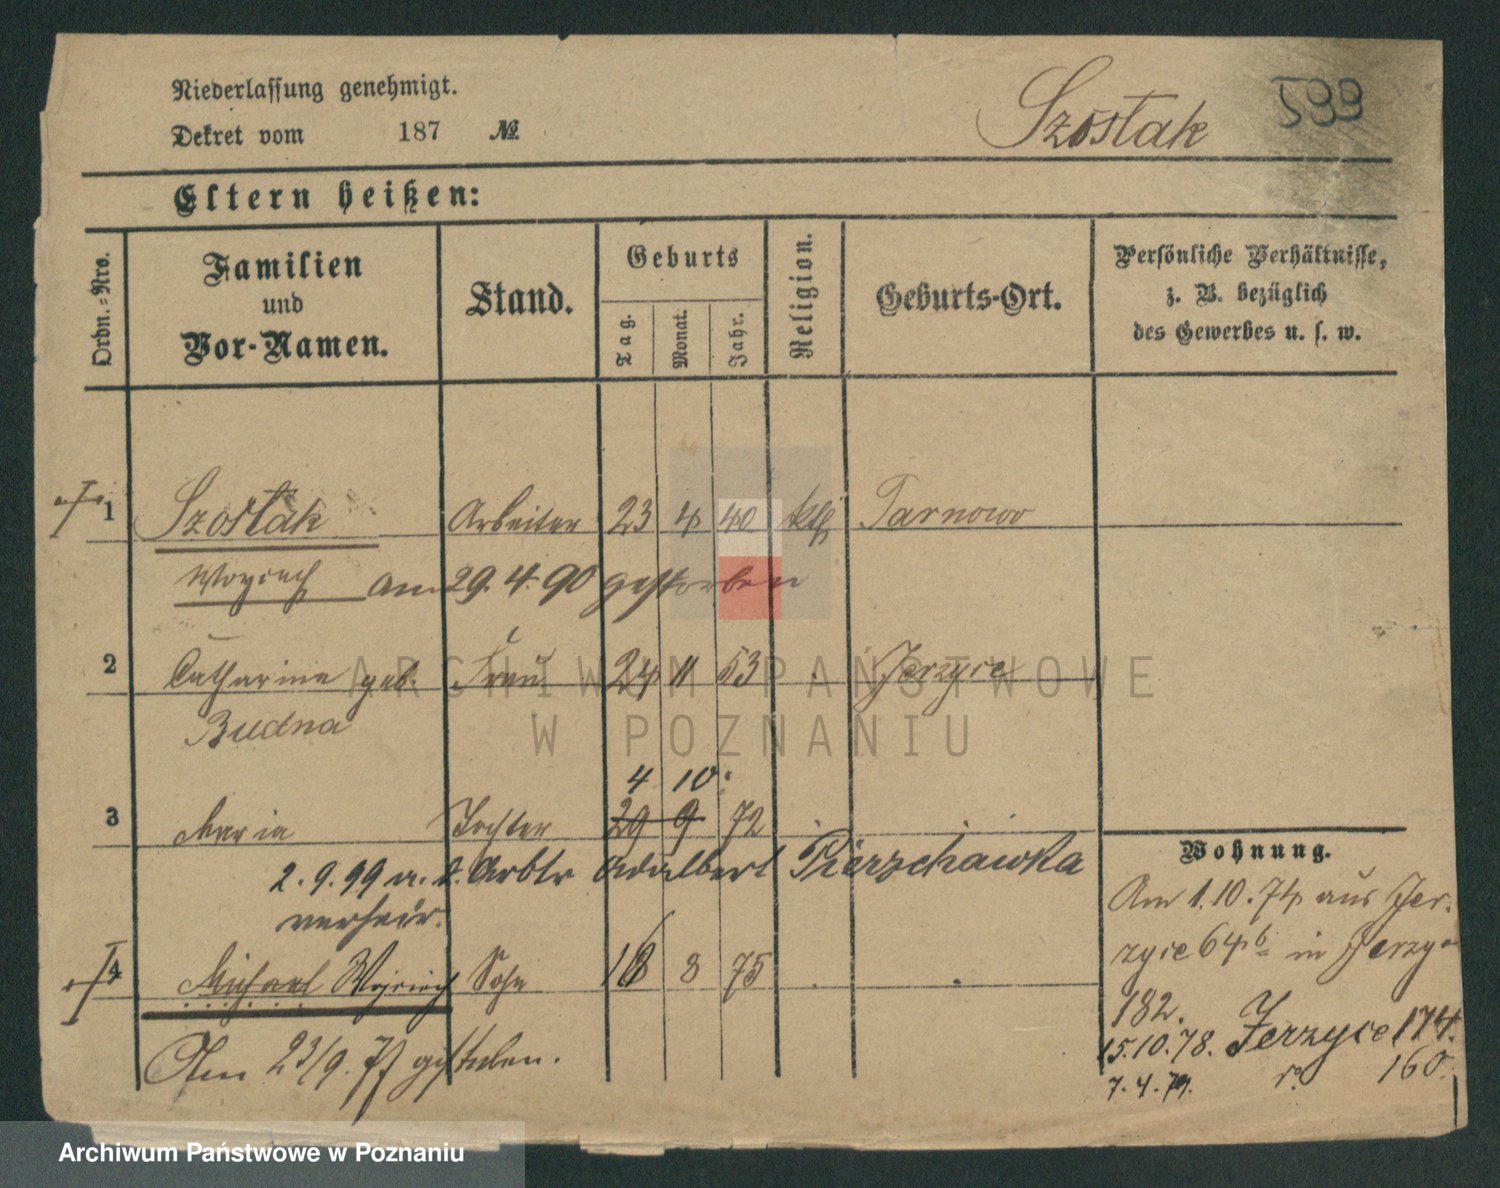 Niederlassung genehmigt.
Dekret vom 187 №
Szostak
599
Eltern heißen:
Ordn.-Nro.
Familien und Vor-Namen.
Stand.
Geburts
Tag.
Monat.
Jahr.
Religion.
Geburts-Ort.
Persönliche Verhältnisse,
z. B. bezüglich
des Gewerbes u. s. w.
1 Szostak Arbeiter 23 4 40 kth Tarnowo
Woyciech am 29.4.90 gestorben
2 Catharina geb. Frau 24 11 53 Jerzyce
Budna
4 10
3 Maria Tochter 29 9 72
2.9.99 m. d. Arbtr Adalbert Pierzchawka
verheir.
4 Michael Wojciech Sohn 16 8 75
Am 23/9. 77 gestorben.
Wohnung.
Am 1.10.74 aus Jer-
zyce 64b in Jerzyce
182.
15.10.78. Jerzyce 174.
7.4.79. 160.
ARCHIWUM PAŃSTWOWE
W POZNANIU
Archiwum Państwowe w Poznaniu